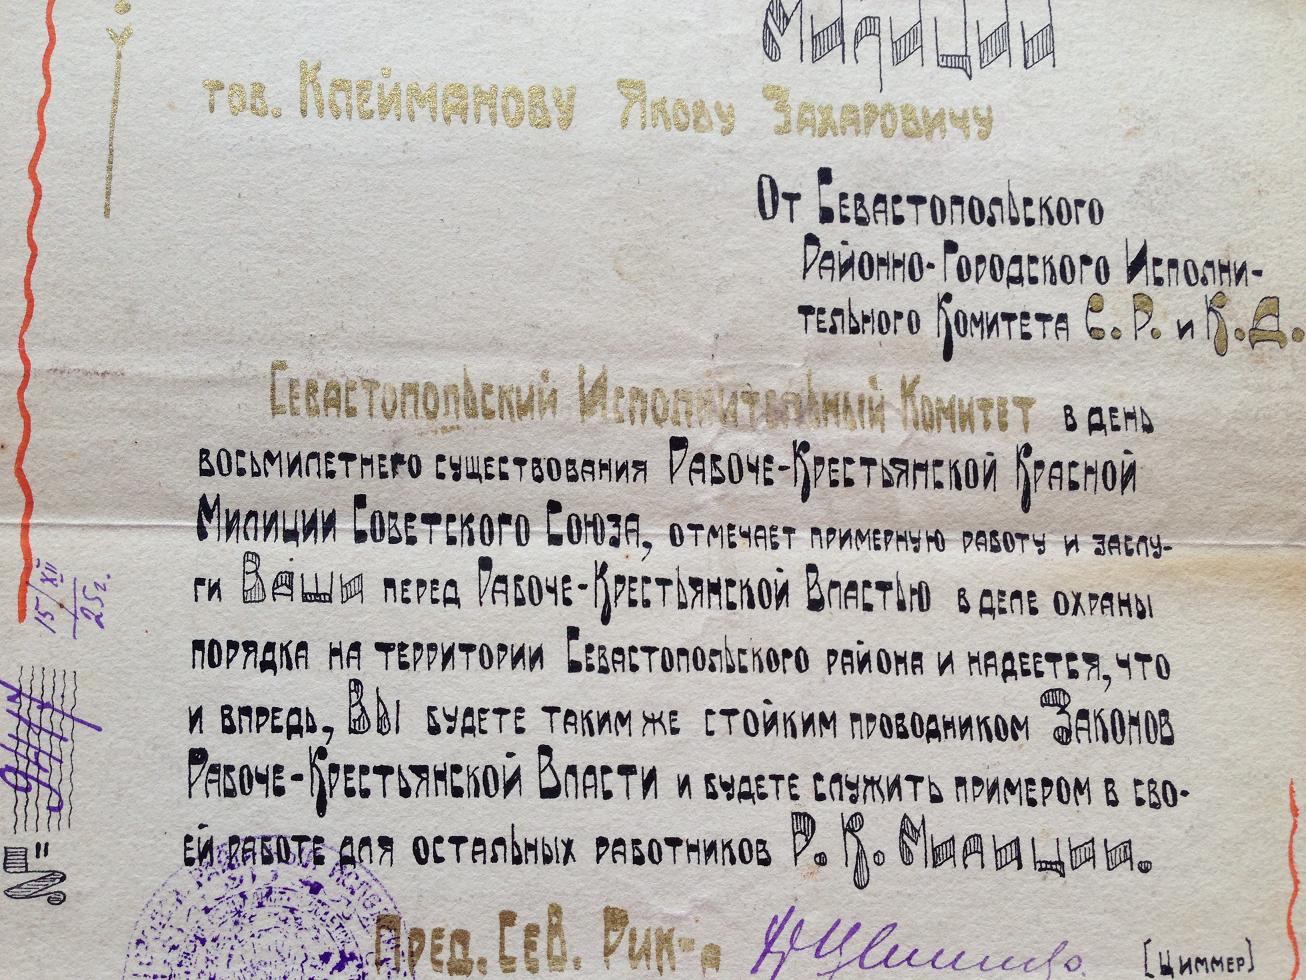 Милиции
тов. Клейманову Якову Захаровичу
От Севастопольского
Районно-Городского Исполни-
тельного Комитета С. Р. и К. Д.
Севастопольский Исполнительный Комитет в день
восьмилетнего существования Рабоче-Крестьянской Красной
Милиции Советского Союза, отмечает примерную работу и заслу-
ги Ваши перед Рабоче-Крестьянской Властью в деле охраны
порядка на территории Севастопольского района и надеется, что
и впредь, Вы будете таким же стойким проводником Законов
Рабоче-Крестьянской Власти и будете служить примером в сво-
ей работе для остальных работников Р. К. Милиции.
Пред. Сев. Рик-а
[Циммер]
15/XII 25г.
№